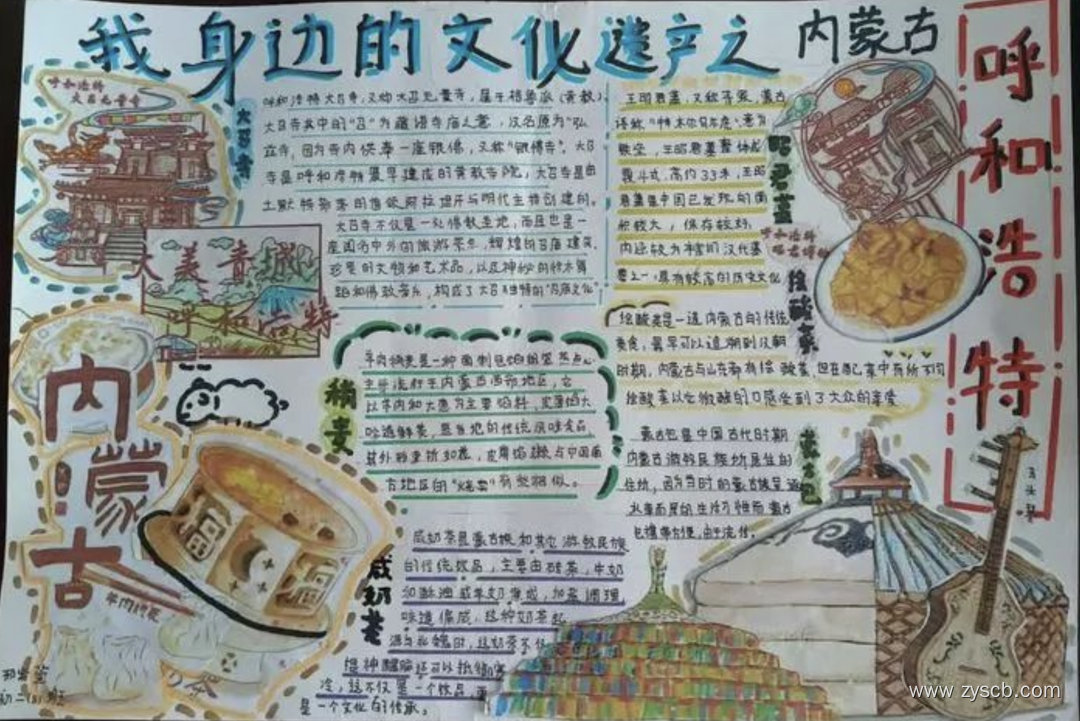 我身边的文化遗产之内蒙古
呼和浩特
呼和浩特
大召无量寺
大召寺
呼和浩特大召寺,又叫大召无量寺,属于格鲁派(黄教)。
大召寺其中的“召”为藏语寺庙之意,汉名原为“弘
立寺,因为寺内供奉一座银佛,又称“银佛寺”。大召
寺是呼和浩特最早建成的黄教寺院,大召寺是由
土默特部落的首领阿拉坦汗与明代主持创建的。
大召寺不仅是一处佛教圣地,而且也是一
座闻名中外的旅游景点,辉煌的召庙建筑、
珍贵的文物和艺术品,以及神秘的恰木舞
蹈和佛教音乐,构成了大召独特的“召庙文化”
昭君墓
王昭君墓,又称青冢,蒙古
语称“特木尔乌尔虎”意为
铁垒,王昭君墓整体成
覆斗式,高约33米,王昭
君墓是中国已发现的面
积较大,保存较好,
内涵较为丰富的汉代墓
葬之一,具有较高的历史文化
大美青城
呼和浩特
烩酸菜
烩酸菜是一道内蒙古的传统
美食,最早可以追溯到汉朝
时期,内蒙古与山东都有烩酸菜,但在配菜中有所不同
烩酸菜以它微酸的口感受到了大众的喜爱
稍麦
羊肉稍麦是一种面制包馅粗笼蒸点心
主要流行于内蒙古西部地区,它
以羊肉和大葱为主要馅料,皮薄馅大
味道鲜美,是当地的传统风味食品
其外形重折如花,皮薄馅嫩与中国南
方地区的“烧卖”有些相似。
蒙古包
蒙古包是中国古代时期
内蒙古游牧民族所居住的
住所,因为当时的蒙古族是逐
水草而居的生活习惯而蒙古
包携带方便,由于流传。
咸奶茶
咸奶茶是蒙古族和其它游牧民族
的传统饮品,主要由砖茶,牛奶
和酥油或羊奶煮成,加盐调理,
味道偏咸,这种奶茶起
源与北魏时,这奶茶不仅
提神醒脑还可以抵御寒
冷,这不仅是一个饮品,更
是一个文化的传承。
内蒙古
羊肉烧麦
奶茶
马头琴
福
福
www.zyscb.com